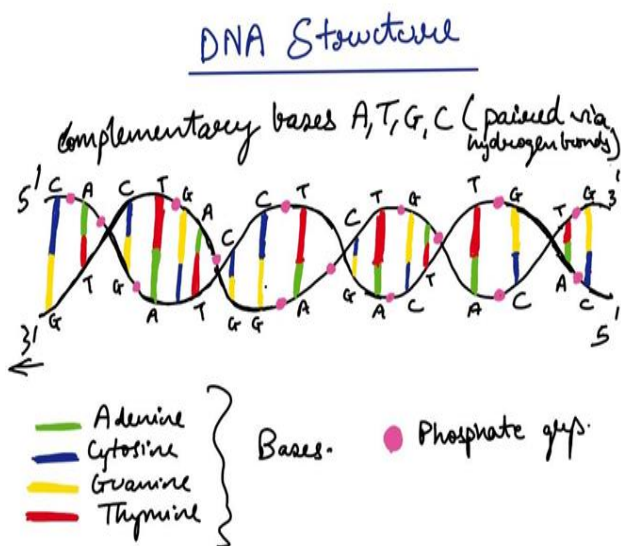 DNA Structure
Complementary bases A,T,G,C (paired via
hydrogen bonds)
5' C A C T G A C C T C T G T G T G 3'
3' G T G A T G G A G A C T A C A C 5'
Adenine
Cytosine
Guanine
Thymine
Bases.
Phosphate grps.